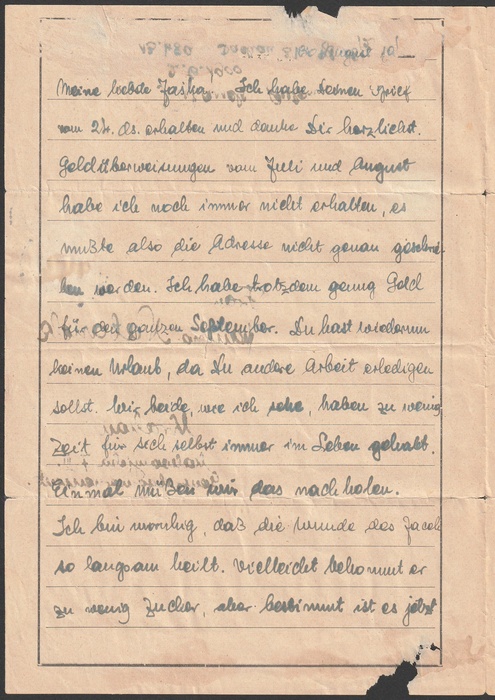 Meine liebste Jaśka. Ich habe Deinen Brief
vom 24. ds. erhalten und danke Dir herzlichst.
Geldüberweisungen vom Juli und August
habe ich noch immer nicht erhalten, es
mußte also die Adresse nicht genau geschrie-
ben werden. Ich habe trotzdem genug Geld
für den ganzen September. Du hast wiederum
keinen Urlaub, da Du andere Arbeit erledigen
sollst. Wir beide, wie ich sehe, haben zu wenig
Zeit für sich selbst immer im Leben gehabt.
Einmal müßen wir das nachholen.
Ich bin unruhig, daß die Wunde das Jacek
so langsam heilt. Vielleicht bekommt er
zu wenig Zucker, aber bestimmt ist es jetzt